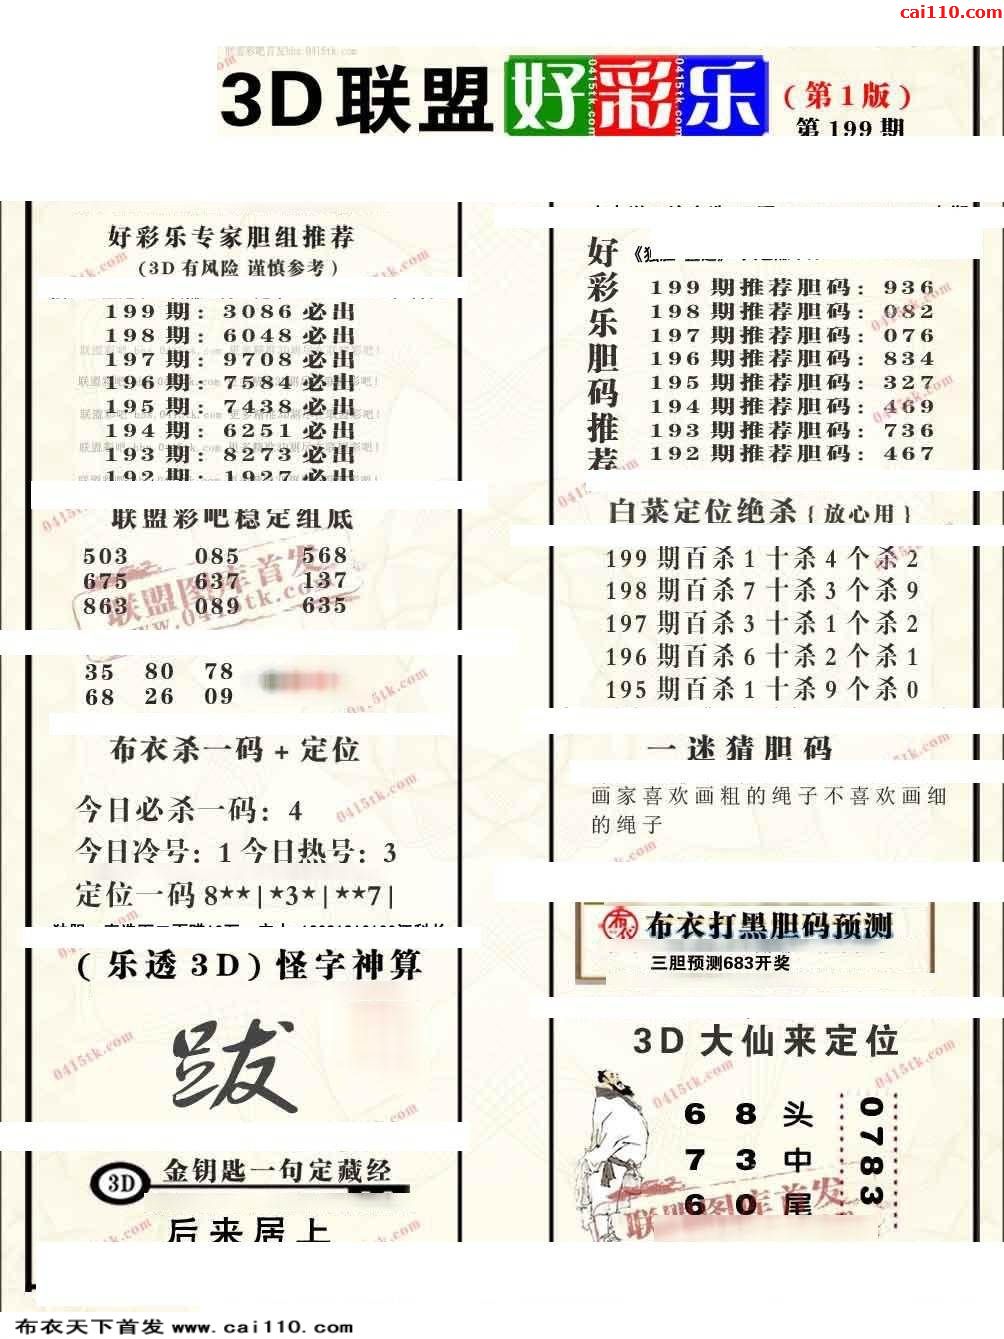 cai110.com
3D联盟好彩乐
(第1版)
第199期
好彩乐专家胆组推荐
(3D有风险 谨慎参考)
199期: 3086必出
198期: 6048必出
197期: 9708必出
196期: 7584必出
195期: 7438必出
194期: 6251必出
193期: 8273必出
192期: 1927必出
联盟彩吧稳定组底
503 085 568
675 637 137
863 089 635
35 80 78
68 26 09
布衣杀一码+定位
今日必杀一码: 4
今日冷号: 1 今日热号: 3
定位一码8**|*3*|**7|
(乐透3D)怪字神算
跋
3D 金钥匙一句定藏经
后来居上
好彩乐胆码推荐
199期推荐胆码: 936
198期推荐胆码: 082
197期推荐胆码: 076
196期推荐胆码: 834
195期推荐胆码: 327
194期推荐胆码: 469
193期推荐胆码: 736
192期推荐胆码: 467
白菜定位绝杀{放心用}
199期百杀1十杀4个杀2
198期百杀7十杀3个杀9
197期百杀3十杀1个杀2
196期百杀6十杀2个杀1
195期百杀1十杀9个杀0
一迷猜胆码
画家喜欢画粗的绳子不喜欢画细
的绳子
布衣打黑胆码预测
三胆预测683开奖
3D大仙来定位
6 8头
7 3中
6 0尾
0783
联盟图库首发
www.0415tk.com
布衣天下首发 www.cai110.com